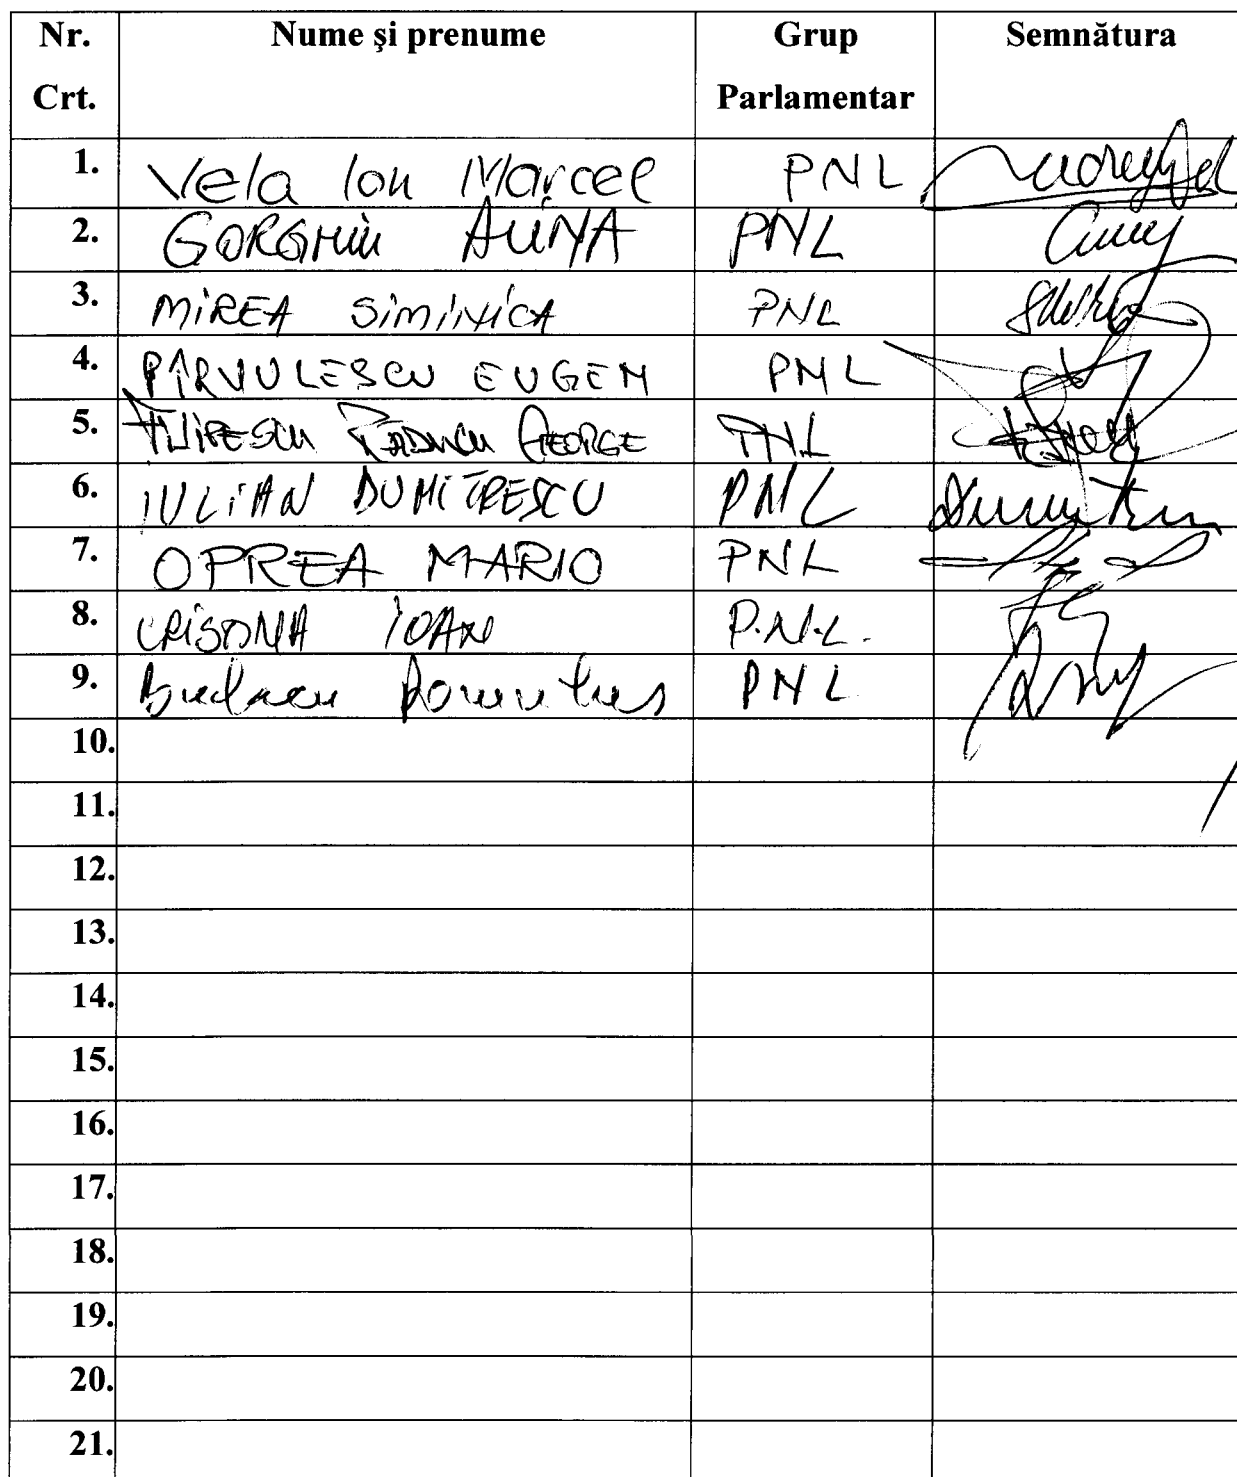 Nr. Crt. Nume şi prenume Grup Parlamentar Semnătura
1. Vela Ion Marcel PNL
2. GORGHIU ALINA PNL
3. MIREA SIMINICA PNL
4. PÎRVULESCU EUGEN PNL
5. FILIPESCU RĂDUCU GEORGE PNL
6. IULIAN DUMITRESCU PNL
7. OPREA MARIO PNL
8. IOAN P.N.L.
9. PNL
10.
11.
12.
13.
14.
15.
16.
17.
18.
19.
20.
21.